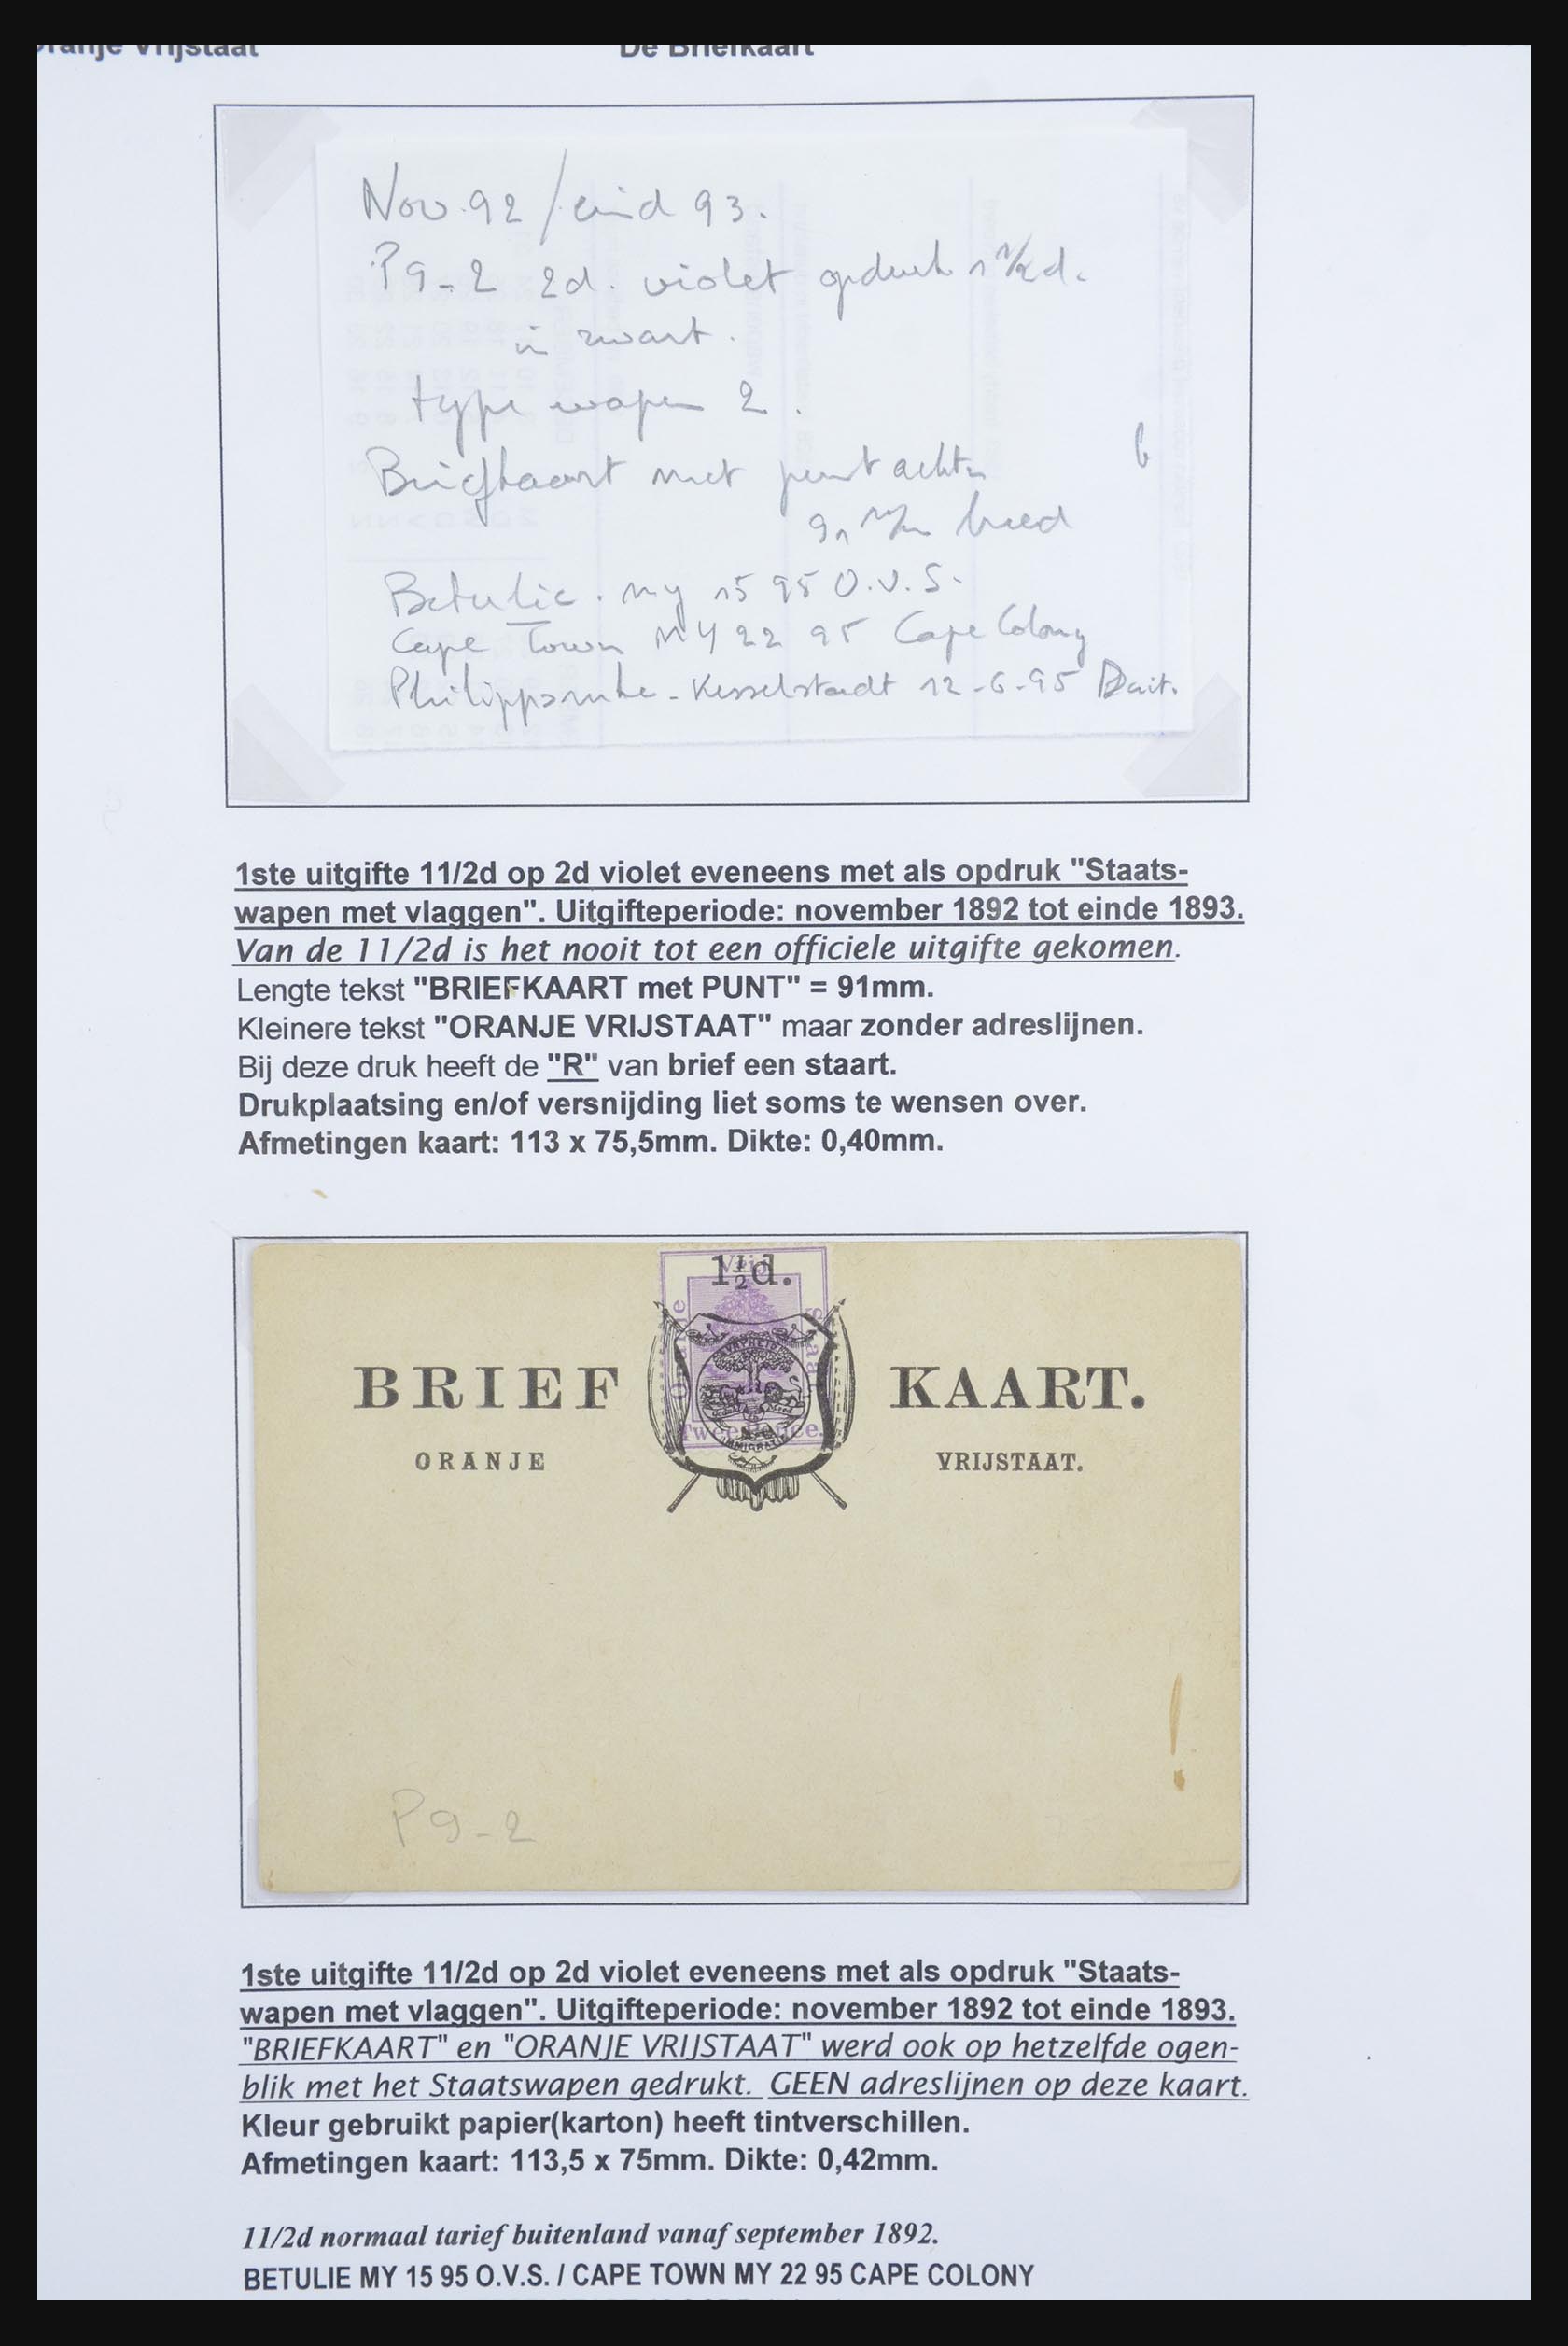 Oranje Vrijstaat De Briefkaart
Nov. 92 / eind 93.
P9-2 2d. violet opdruk 1 1/2 d.
in zwart.
type wapen 2.
Briefkaart met punt achter
91 m/m breed
Betulie. My 15 95 O.V.S.
Cape Town MY 22 95 Cape Colony
Philippsruhe - Kesselstadt 12-6-95
1ste uitgifte 11/2d op 2d violet eveneens met als opdruk "Staats-
wapen met vlaggen". Uitgifteperiode: november 1892 tot einde 1893.
Van de 11/2d is het nooit tot een officiele uitgifte gekomen.
Lengte tekst "BRIEFKAART met PUNT" = 91mm.
Kleinere tekst "ORANJE VRIJSTAAT" maar zonder adreslijnen.
Bij deze druk heeft de "R" van brief een staart.
Drukplaatsing en/of versnijding liet soms te wensen over.
Afmetingen kaart: 113 x 75,5mm. Dikte: 0,40mm.
1½d.
Vrij
Oranje Staat
Twee Pence.
IMMIGRATIE
BRIEF KAART.
ORANJE VRIJSTAAT.
P9-2
1ste uitgifte 11/2d op 2d violet eveneens met als opdruk "Staats-
wapen met vlaggen". Uitgifteperiode: november 1892 tot einde 1893.
"BRIEFKAART" en "ORANJE VRIJSTAAT" werd ook op hetzelfde ogen-
blik met het Staatswapen gedrukt. GEEN adreslijnen op deze kaart.
Kleur gebruikt papier(karton) heeft tintverschillen.
Afmetingen kaart: 113,5 x 75mm. Dikte: 0,42mm.
11/2d normaal tarief buitenland vanaf september 1892.
BETULIE MY 15 95 O.V.S. / CAPE TOWN MY 22 95 CAPE COLONY